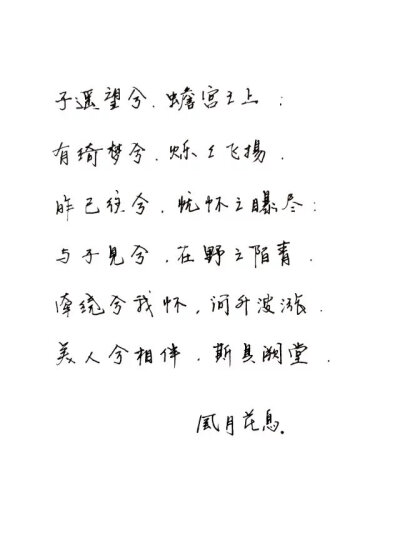 子遥望兮，蟾宫之上；
有琦梦兮，烁之飞揚．
昨已往兮，忧怀之曝尽；
与子见兮，在野之陌青．
牵绕兮我怀，河升波涨．
美人兮相伴，斯具阙堂．
风月花息．